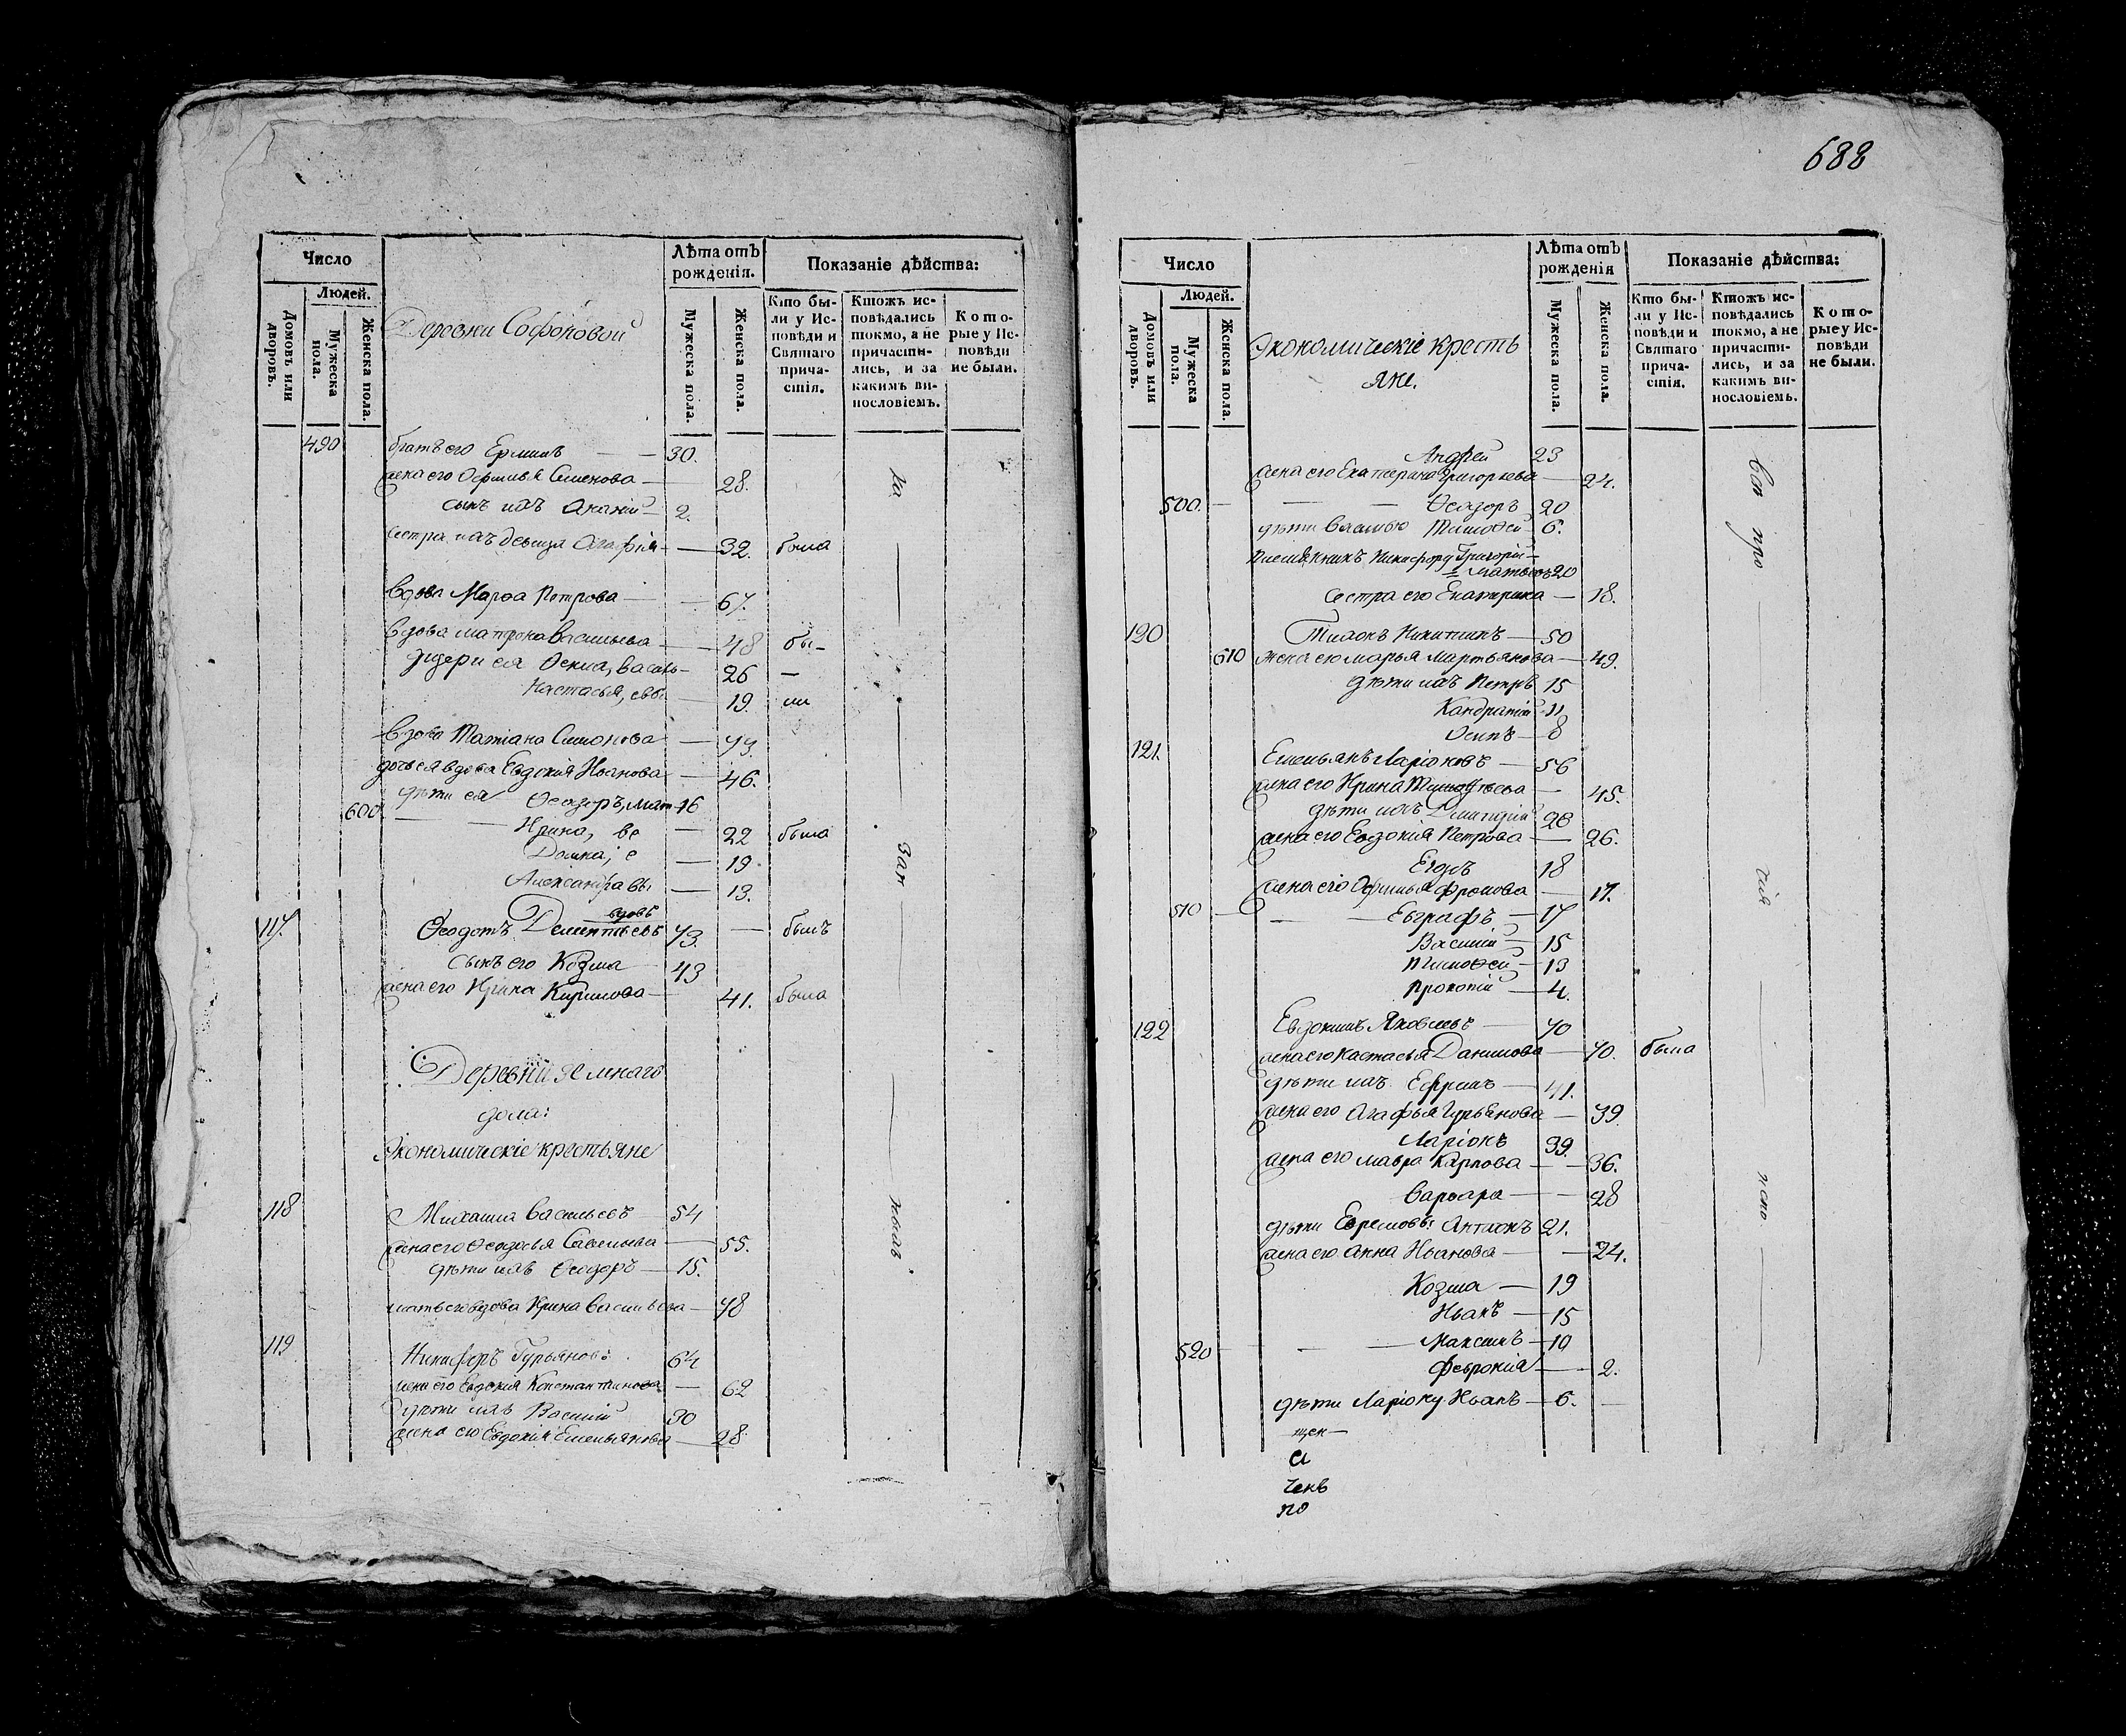 Число
Людей.
Домовъ или дворовъ.
Мужеска пола.
Женска пола.
Деревни Софоновой
Лѣта отъ рожденія.
Мужеска пола.
Женска пола.
Показаніе дѣйства:
Кто бы-
ли у Ис-
повѣди и
Святаго
прича-
стія.
Ктожъ ис-
повѣдались
токмо, а не
причасти-
лись, и за
какимъ ви-
нословіемъ.
Кото-
рые у Ис-
повѣди
не были.
490 братъ его Ермилъ — 30.
жена его Офимья Семенова — 28.
сынъ ихъ Ананій — 2.
сестра ихъ девица Агафья — 32. была
вдова Марѳа Петрова — 67.
вдова матрона Васильева — 48 бы-
дщери ея Ѳекла, васи — 26 —
Настасья, евы — 19. ли
вдова Татіана Симонова — 73.
дочь ея вдова Евдокія Иванова — 46.
дѣти ея Ѳеодоръ, мат 16
600. Ирина, ве — 22 была
Домна, е — 19.
Александра вы — 13.
117. Ѳеодотъ Дементьевъ вдовъ 73. — былъ
сынъ его Козма 43
жена его Ирина Кирилова — 41. была
Деревни Емнаго
дола:
Экономическіе крестьяне
118 Михаила Васильевъ — 54
жена его Ѳеодосья Савельева — 55.
дѣти ихъ Ѳеодоръ — 15.
мать его вдова Ирина Васильева — 78
119. Никифоръ Гурьяновъ 64
жена его Евдокія Константинова — 62
дѣти ихъ Василій 30
жена его Евдокія Емельянова — 28
за
мыль
688
Число
Людей.
Домовъ или дворовъ.
Мужеска пола.
Женска пола.
Экономическіе кресть
яне.
Лѣта отъ рожденія
Мужеска пола.
Женска пола.
Показаніе дѣйства:
Кто бы-
ли у Ис-
повѣди и
Святаго
прича-
стія.
Ктожъ ис-
повѣдались
токмо, а не
причасти-
лись, и за
какимъ ви-
нословіемъ.
Кото-
рые у Ис-
повѣди
не были.
Андрей 23
жена его Екатерина Григорьева — 24.
500. — Ѳеодоръ 20
дѣти Василью Тимоѳей 6.
племѣнникъ Никифору Григорій —
Матвеевъ 20
сестра его Екатерина — 18.
120 Тихонъ Никитинъ — 50
610 жена его марья Мартьянова — 49.
дѣти ихъ Петръ 15
Кандратій 11
Осипъ — 8
121. Емельянъ Ларіоновъ — 56
жена его Ирина Тимоѳѣева — 45.
дѣти ихъ Дмитрій 28
жена его Евдокія Петрова — 26.
Егоръ 18
жена его Офимья Фролова — 17.
510 — Евграфъ — 17
Василій — 15
Тимоѳей — 13
Прокопій — 4.
122 Евдокимъ Яковлевъ — 70
жена его Настасья Данилова — 70. была
дѣти ихъ Ефримъ — 41.
жена его Агафья Гурьянова — 39
Ларіонъ 39.
жена его мавра Карпова — 36.
Варвара — 28
дѣти Ефремовы Антонъ 21.
жена его Анна Иванова — 24.
Козма — 19
Иванъ — 15
520 — Максимъ — 10
Феврокиja — 2.
дѣти Ларіону Иванъ — 6.